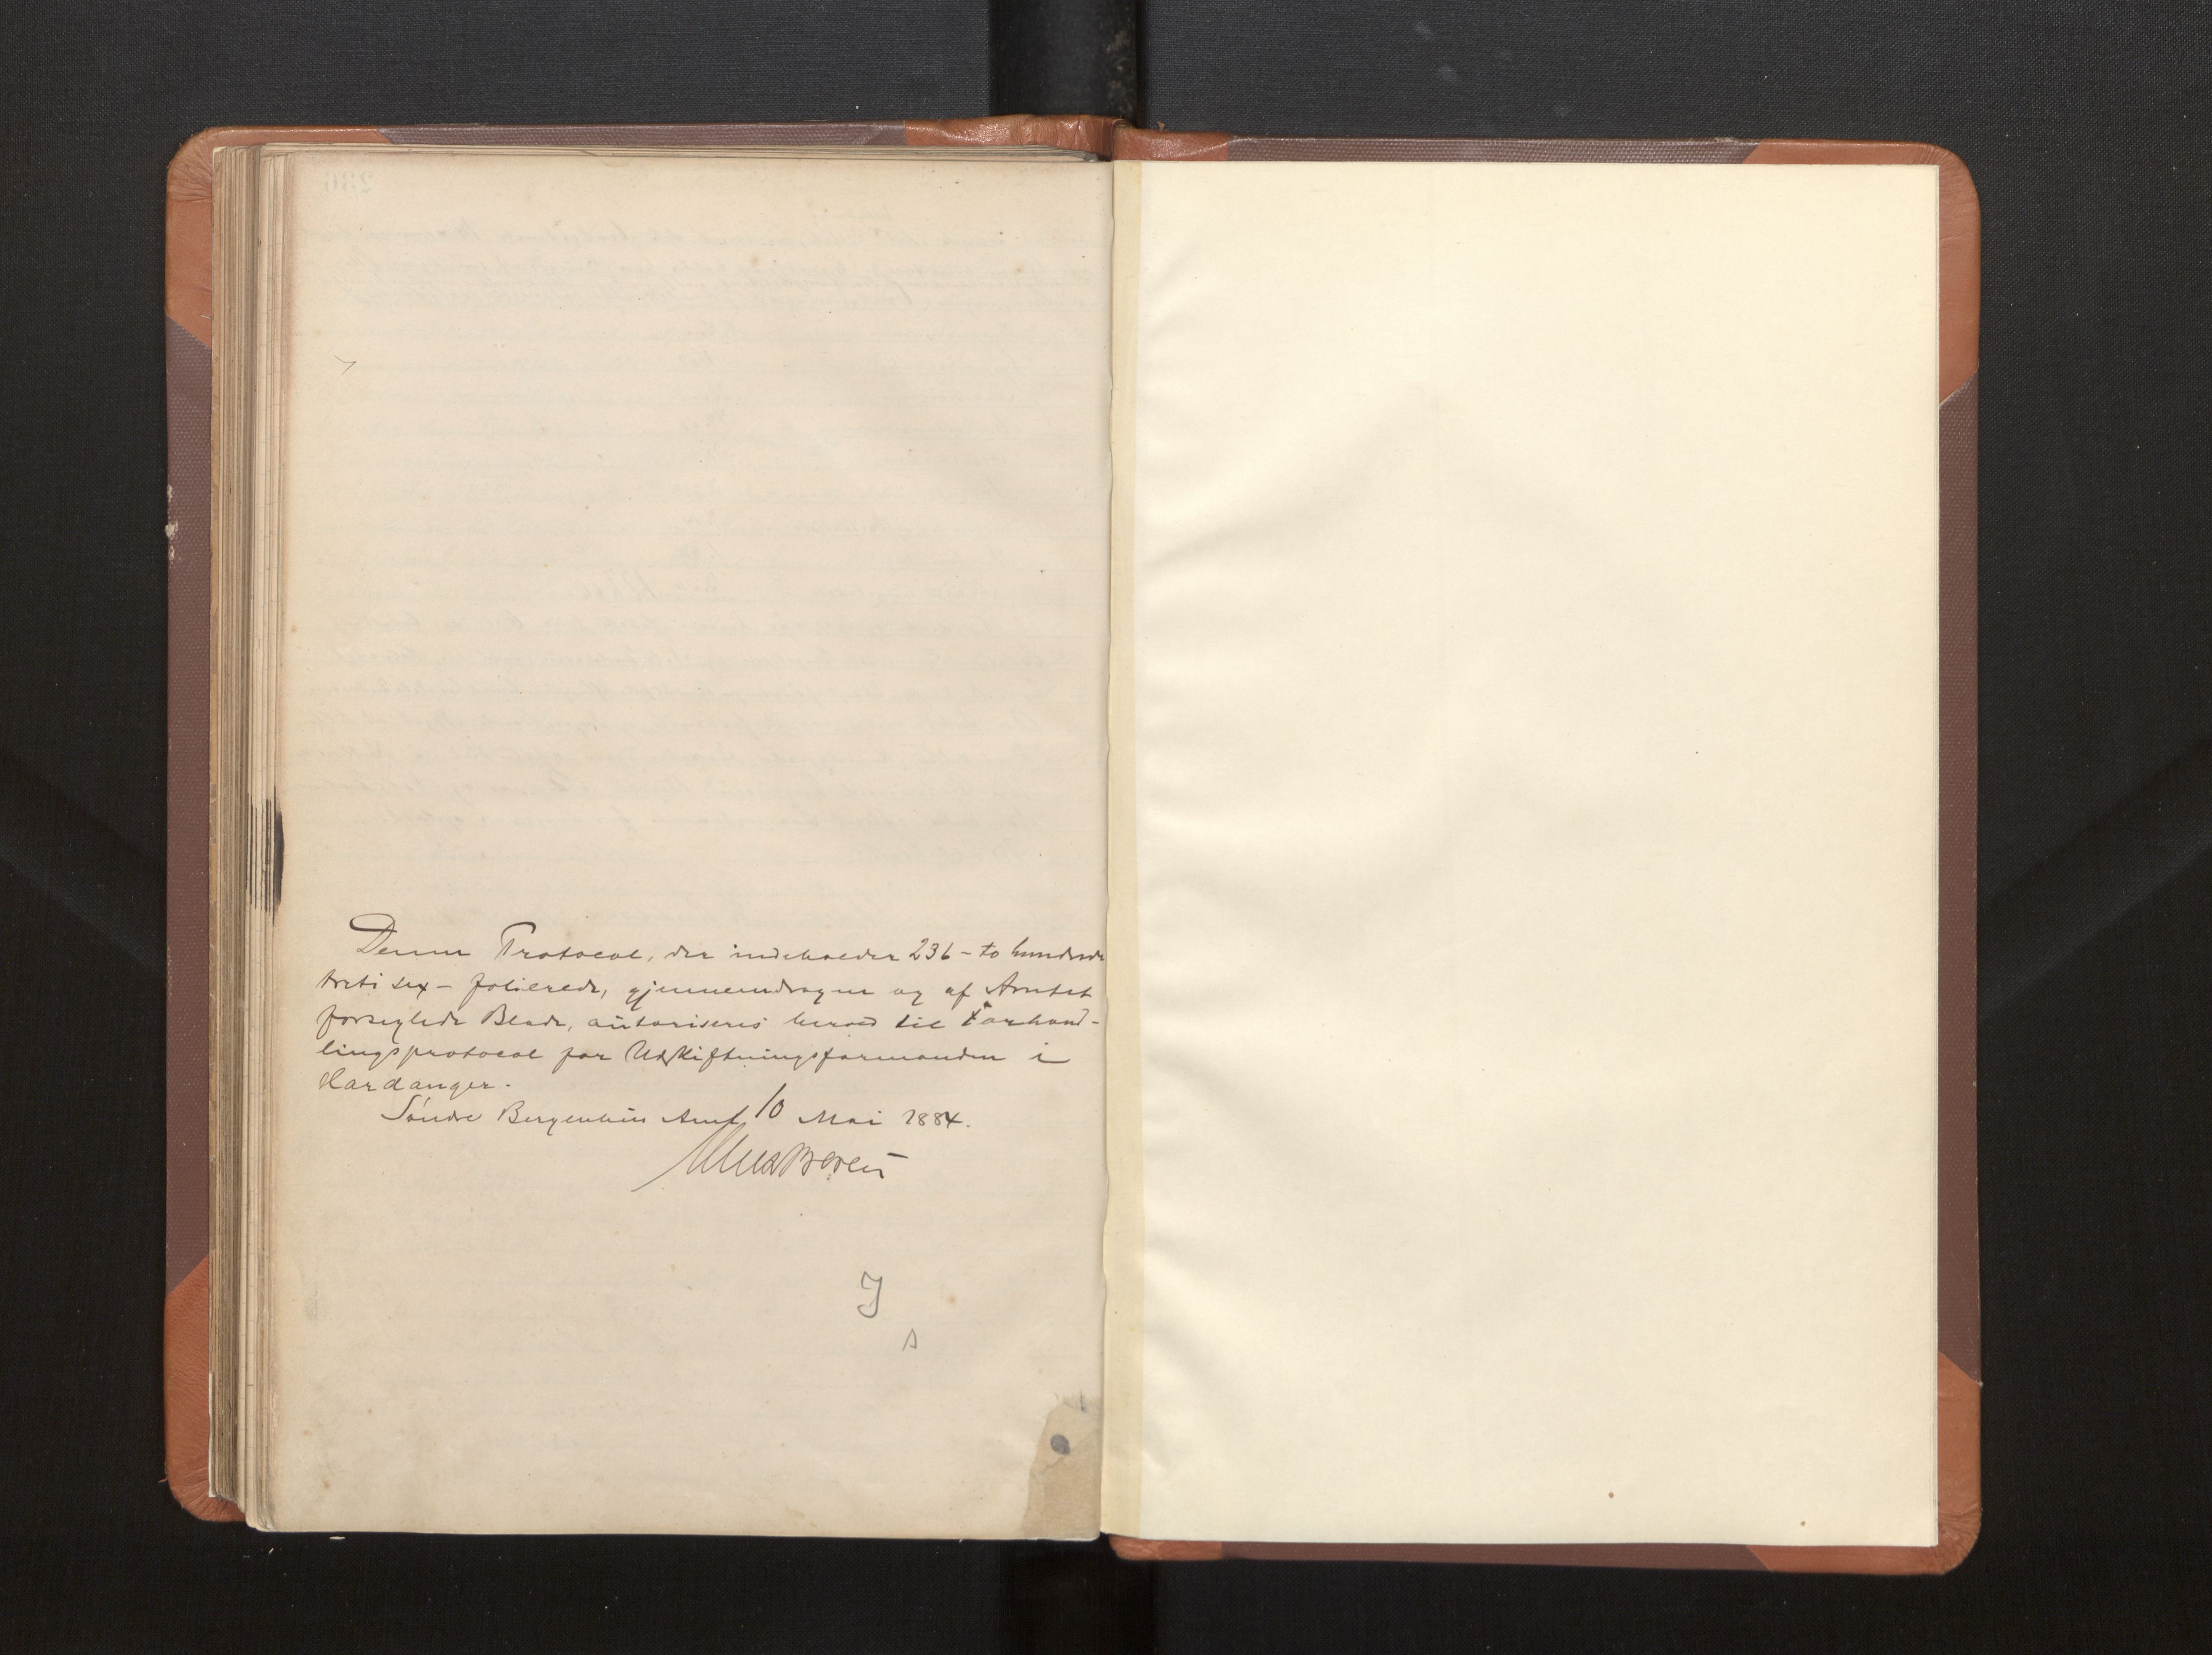 Denne Protocol, der indeholder 236 – to hundrede
treti sex – folierede, gjennemdragne og af Amtet
forseglede Blade, autoriseres herved til Forhand-
lingsprotocol for Udskiftningsformanden i
Hardanger.
Søndre Bergenhus Amt 10 Mai 1884.
J
s